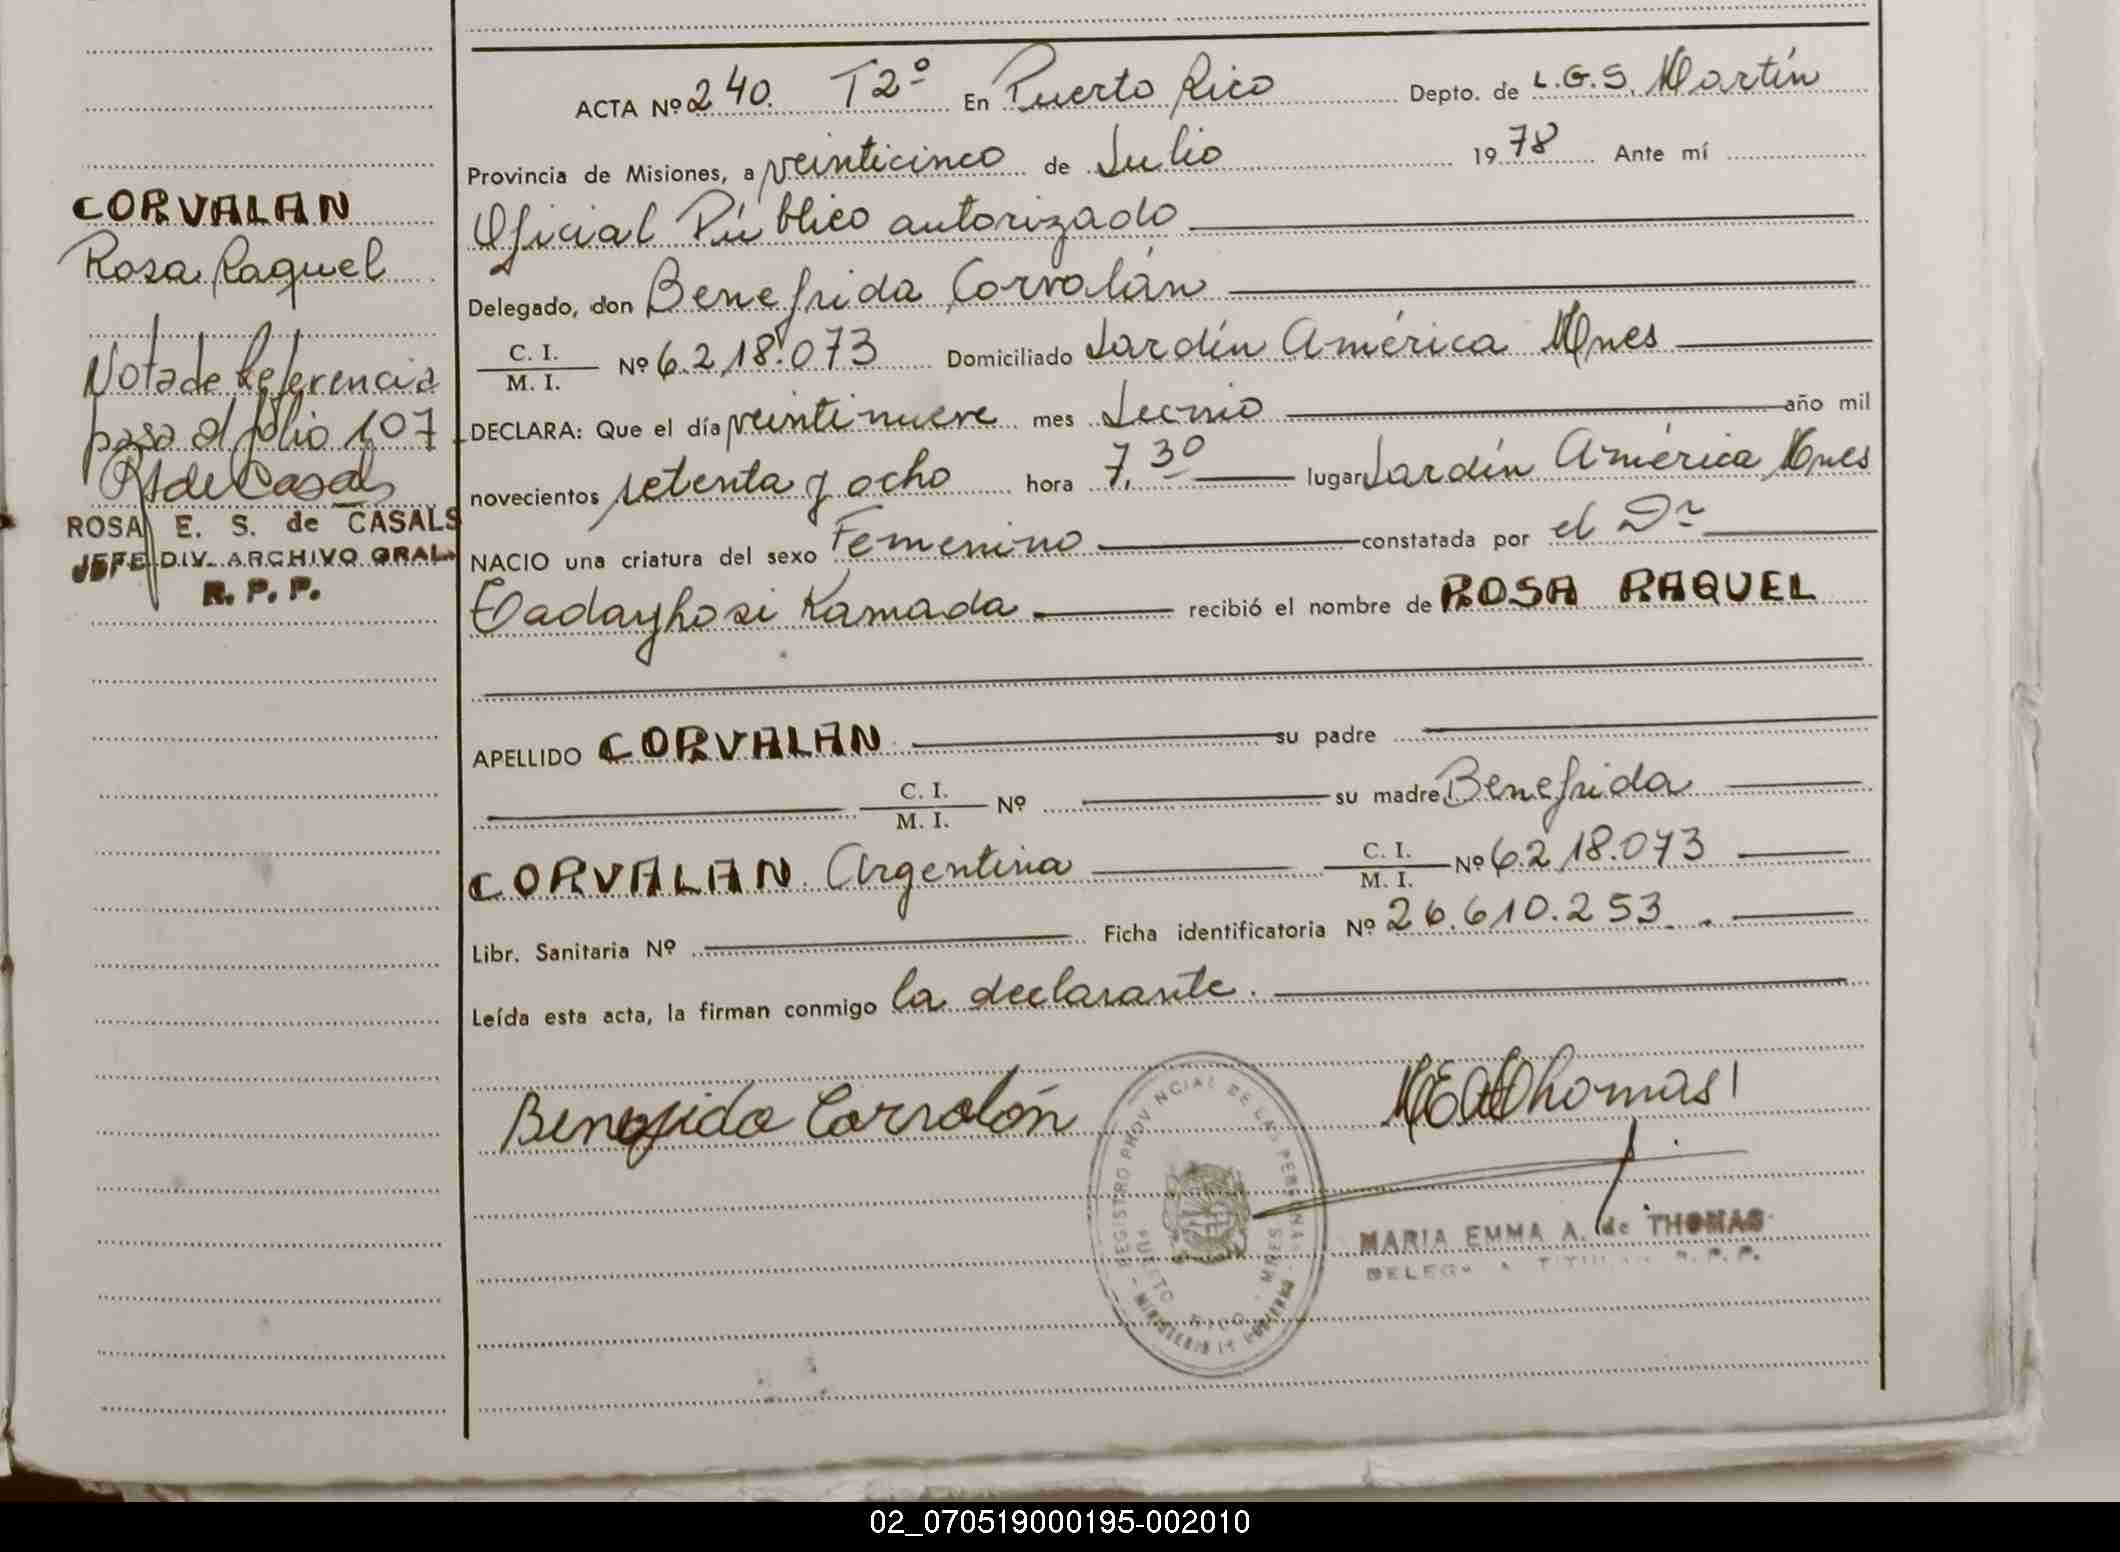 ACTA Nº 240. T2º En Puerto Rico Depto. de L.G.S. Martín
Provincia de Misiones, a veinticinco de Julio 1978 Ante mí
CORVALAN
Oficial Público autorizado
Rosa Raquel
Delegado, don Benefrida Corvalán
Nota de Referencia
C. I. / M. I. Nº 6.218.073 Domiciliado Jardín América Mnes
pasa al folio 107
DECLARA: Que el día veintinueve mes Junio año mil
novecientos setenta y ocho hora 7,30 lugar Jardín América Mnes
ROSA E. S. de CASALS
NACIO una criatura del sexo Femenino constatada por el Dr
JEFE DIV. ARCHIVO GRAL.
R. P. P.
Tadayhosi Kamada recibió el nombre de ROSA RAQUEL
APELLIDO CORVALAN su padre
C. I. / M. I. Nº su madre Benefrida
CORVALAN Argentina C. I. / M. I. Nº 6.218.073
Libr. Sanitaria Nº Ficha identificatoria Nº 26.610.253.
Leída esta acta, la firman conmigo la declarante.
Benefrida Corvalán
REGISTRO PROVINCIAL DE LAS PERSONAS
PUERTO RICO - MNES
MINISTERIO DE GOBIERNO
MARIA EMMA A. de THOMAS
DELEGADA TITULAR R. P. P.
02_070519000195-002010